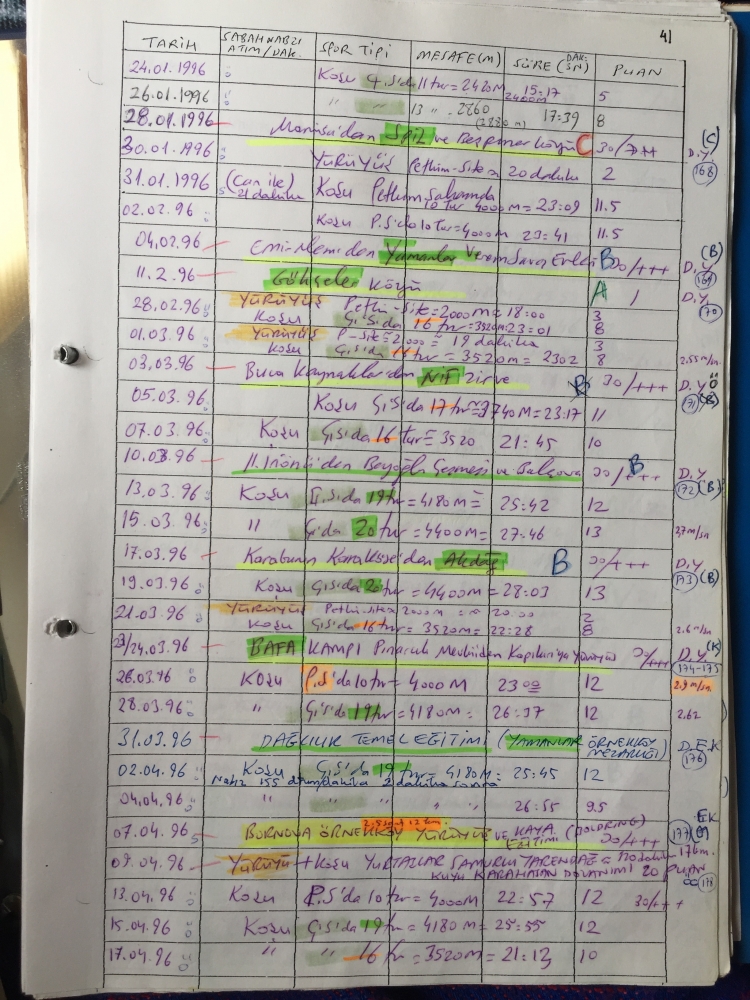 41
TARİH SABAH NABZI ATIM/DAK. SPOR TİPİ MESAFE(M) SÜRE (DAK: SN) PUAN
24.01.1996 Koşu Ç.S'da 11 tur = 2420m 15:17 5
26.01.1996 " " 13 " 2860 2400m 17:39 8
28.01.1996 Manisa'dan Spil ve Beşpınar köyü C 30/+++ D.Y. (C)
30.01.1996 YÜRÜYÜŞ Petkim-Site 20 dakika 2 168
31.01.1996 (Can ile) 21 dakika Koşu Petkim Sahasında 10 tur 4000m = 23:09 11.5
02.02.96 Koşu P.S'da 10 tur = 4000m 23:41 11.5
04.02.96 Emiralem'den Yamanlar Verem Sava Evleri B 30/+++ D.Y (B) 169
11.2.96 Gökçeler Köyü A / D.Y. 170
28.02.96 YÜRÜYÜŞ Petkim-Site = 2000m = 18:00 3
Koşu Ç.S'da 16 tur = 3520m 23:01 8
01.03.96 YÜRÜYÜŞ P-Site = 2000 = 19 dakika 3
Koşu Ç.S'da tur = 3520m = 2302 8 2.55 m/sn.
03.03.96 Buca Kaynaklar'dan NİF Zirve B 30/+++ D.Y 171 (B)
05.03.96 Koşu Ç.S'da 17 tur = 3740m = 23:17 11
07.03.96 Koşu Ç.S'da 16 tur = 3520 21:45 10
10.03.96 II. İnönü'den Beyoğlu Çeşmesi ve Balçova 30/+++ B D.Y 172 (B)
13.03.96 Koşu Ç.S'da 19 tur = 4180m = 25:42 12
15.03.96 " Ç.S'da 20 tur = 4400m = 27:46 13 27 m/sn
17.03.96 Karaburun Karaköse'den Akdağ B 30/+++ D.Y 173 (B)
19.03.96 Koşu Ç.S'da 20 tur = 4400m = 28:03 13
21.03.96 YÜRÜYÜŞ Petkim-Site 2000m = 20:00 2
Koşu Ç.S'da 16 tur = 3520m = 22:28 8 2.6 m/sn
23/24.03.96 BAFA KAMPI Pınarcık Mevkiinden Kapıkırı'ya yürüyüş 30/+++ D.Y. (K) 174-175
26.03.96 Koşu P.S'da 10 tur = 4000M 23:00 12 2.9 m/sn.
28.03.96 " Ç.S'da 19 tur = 4180m = 26:37 12 2.62
31.03.96 DAĞCILIK TEMEL EĞİTİMİ (YAMANLAR ÖRNEKKÖY MEZARLIĞI) D.EK 176
02.04.96 Koşu Ç.S'da 19 tur = 4180m = 25:45 12
Nabız 155 atım/dakika 2 dakika sonra
04.04.96 " " " " 26:55 9.5
07.04.96 BORNOVA ÖRNEKKÖY YÜRÜYÜŞ VE KAYA EĞİTİMİ (BOLDRING) 30/+++ EK 177
09.04.96 YÜRÜYÜŞ + Koşu YURTALLAR SAMURLU TARENDAĞ 176m.
KUYU KARAHASAN DAVANIMI 20 PUAN 178
13.04.96 Koşu P.S'da 10 tur = 4000m 22:57 12 30/+++
15.04.96 Koşu Ç.S'da 19 tur = 4180m = 25:55 12
17.04.96 " " 16 tur = 3520m = 21:13 10